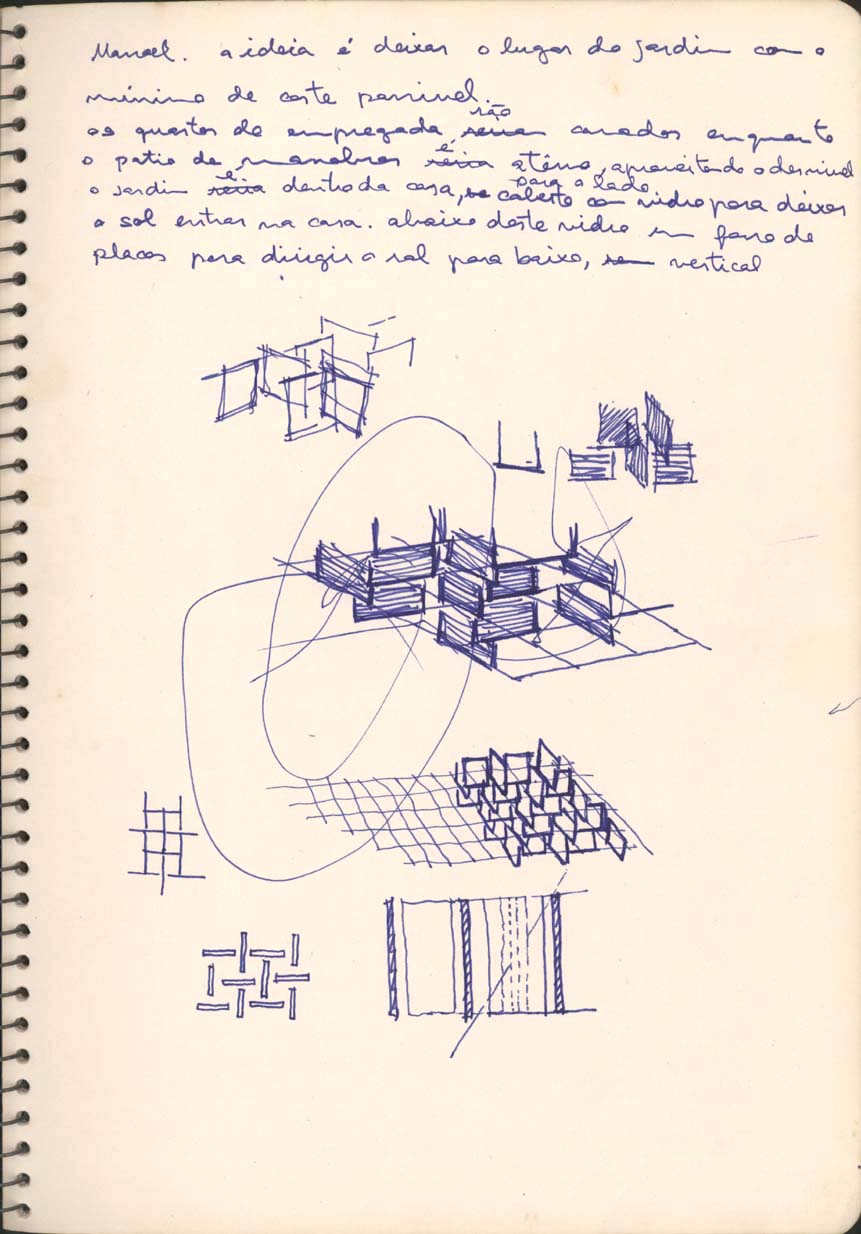 Manoel. a ideia é deixar o lugar do jardin com o
mínimo de corte possivel.
os quartos de empregada são cavados enquanto
o patio de manobras é atêrro, aproveitando o desnivel
o jardin é dentro da casa, coberto com vidro para deixar
para o lado
o sol entrar na casa. abaixo deste vidro um forro de
placas para dirigir o sol para baixo, vertical